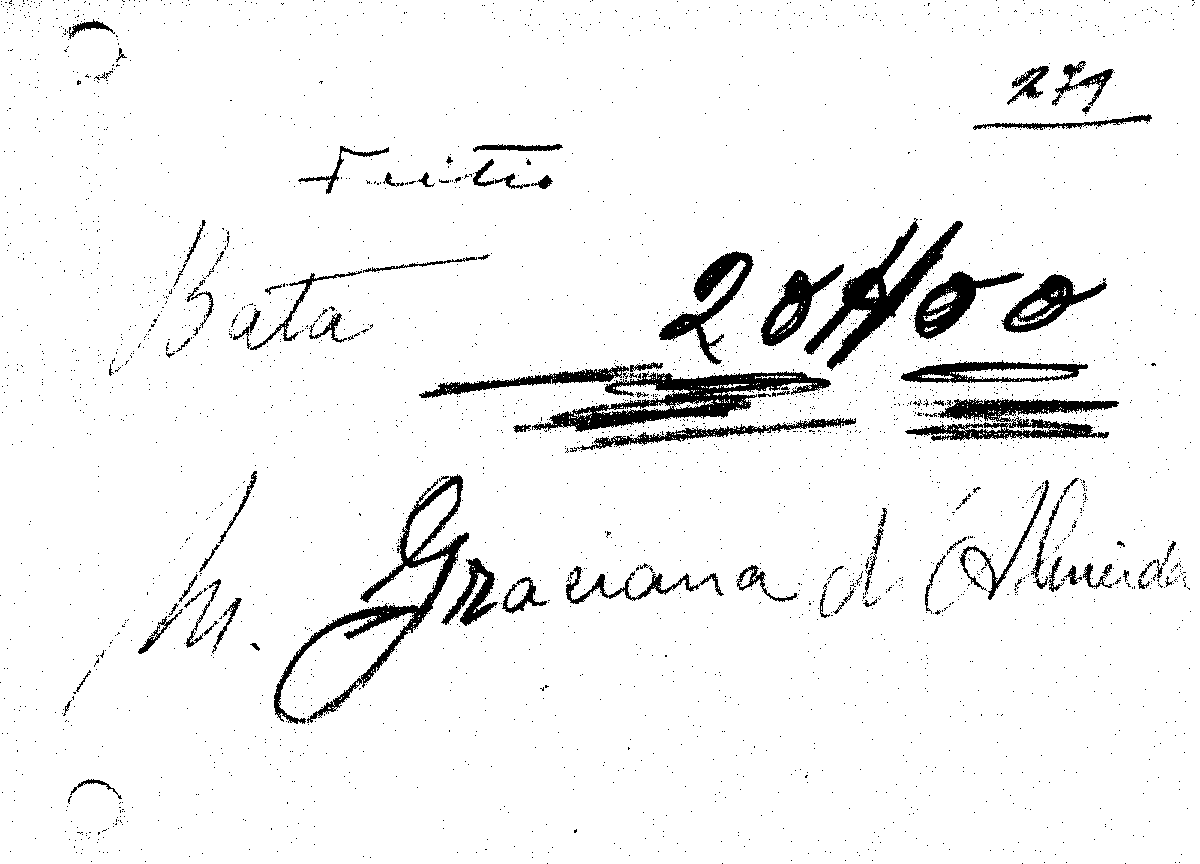 271
Feitio
Bata 20$00
M. Graciana d'Almeida